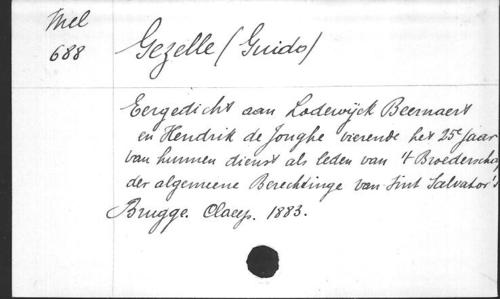 Mel
688
Gezelle (Guido)
Eergedicht aan Lodewijck Beernaert
en Hendrik de Jonghe vierende het 25e Jaar
van hunnen dienst als leden van 't Broederschap
der algemeene Berechtinge van Sint Salvator's
Brugge. 1883.